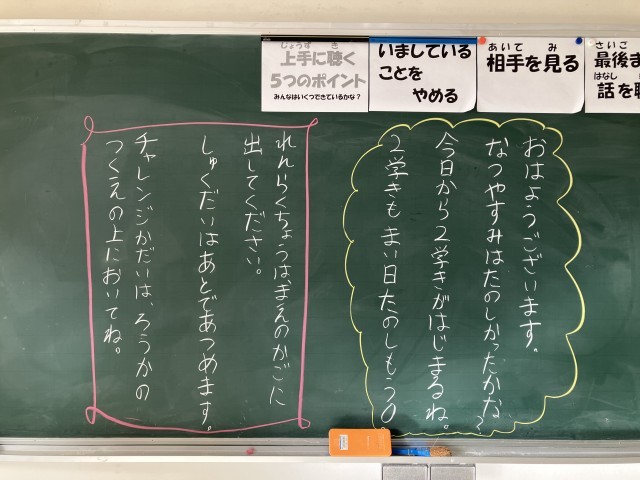 じょうず き
上手に聴く
5つのポイント
みんなはいくつできているかな？
いましている
ことを
やめる
あいて み
相手を見る
さいご
最後ま
はなし
話を聴
おはようございます。
なつやすみはたのしかったかな？
今日から2学きがはじまるね。
2学きもまい日たのしもう
れんらくちょうは、まえのかごに
出してください。
しゅくだいはあとであつめます。
チャレンジかだいは、ろうかの
つくえの上においてね。